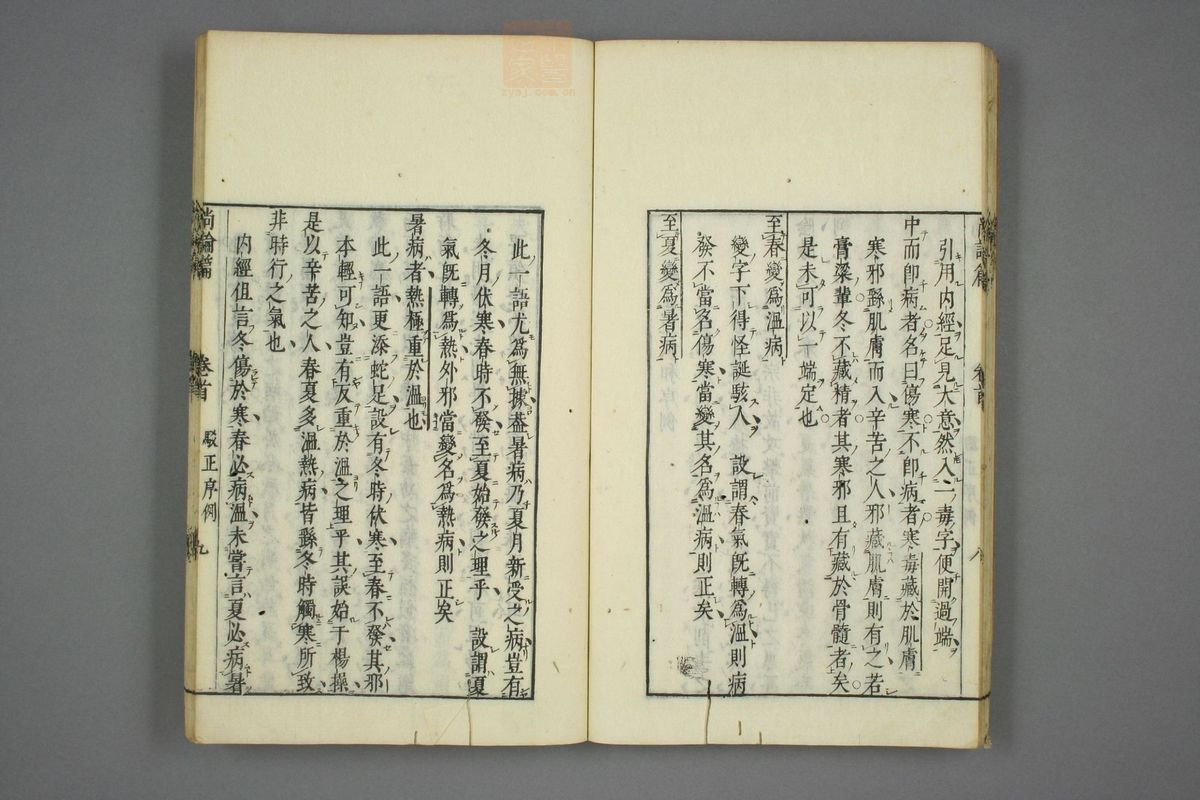 引用内經足見大意然入一毒字便開過端
中而卽病者名曰傷寒不卽病者寒毒藏於肌膚
寒邪繇肌膚而入辛苦之人邪藏肌膚則有之若
膏粱輩冬不藏精者其寒邪且有藏於骨髓者矣
是未可以一端定也
至春變爲溫病
變字下得怪誕駭人 設謂春氣旣轉爲溫則病
發不當名傷寒當變其名爲溫病則正矣
至夏變爲暑病
此一語尤爲無據葢暑病乃夏月新受之病豈有
冬月伏寒春時不發至夏始發之理乎 設謂夏
氣旣轉爲熱外邪當變名爲熱病則正矣
暑病者熱極重於溫也
此一語更添蛇足設有冬時伏寒至春不發其邪
本輕可知豈有反重於溫之理乎其誤始于楊操
是以辛苦之人春夏多溫熱病皆繇冬時觸寒所致
非時行之氣也
内經但言冬傷於寒春必病溫未嘗言夏必病暑
尚論篇 卷首 駁正序例 九
zysj.com.cn